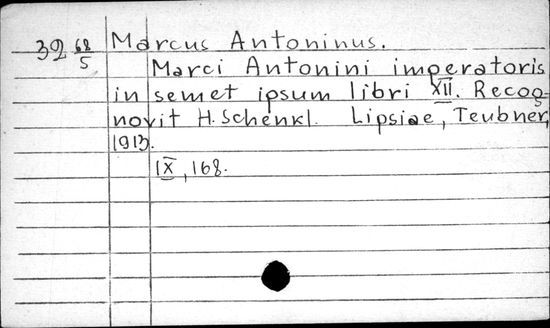 39 68/5 Marcus Antoninus.
Marci Antonini imperatoris
in semet ipsum libri XII. Recog-
novit H. Schenkl. Lipsiae, Teubner,
1913.
IX, 168.